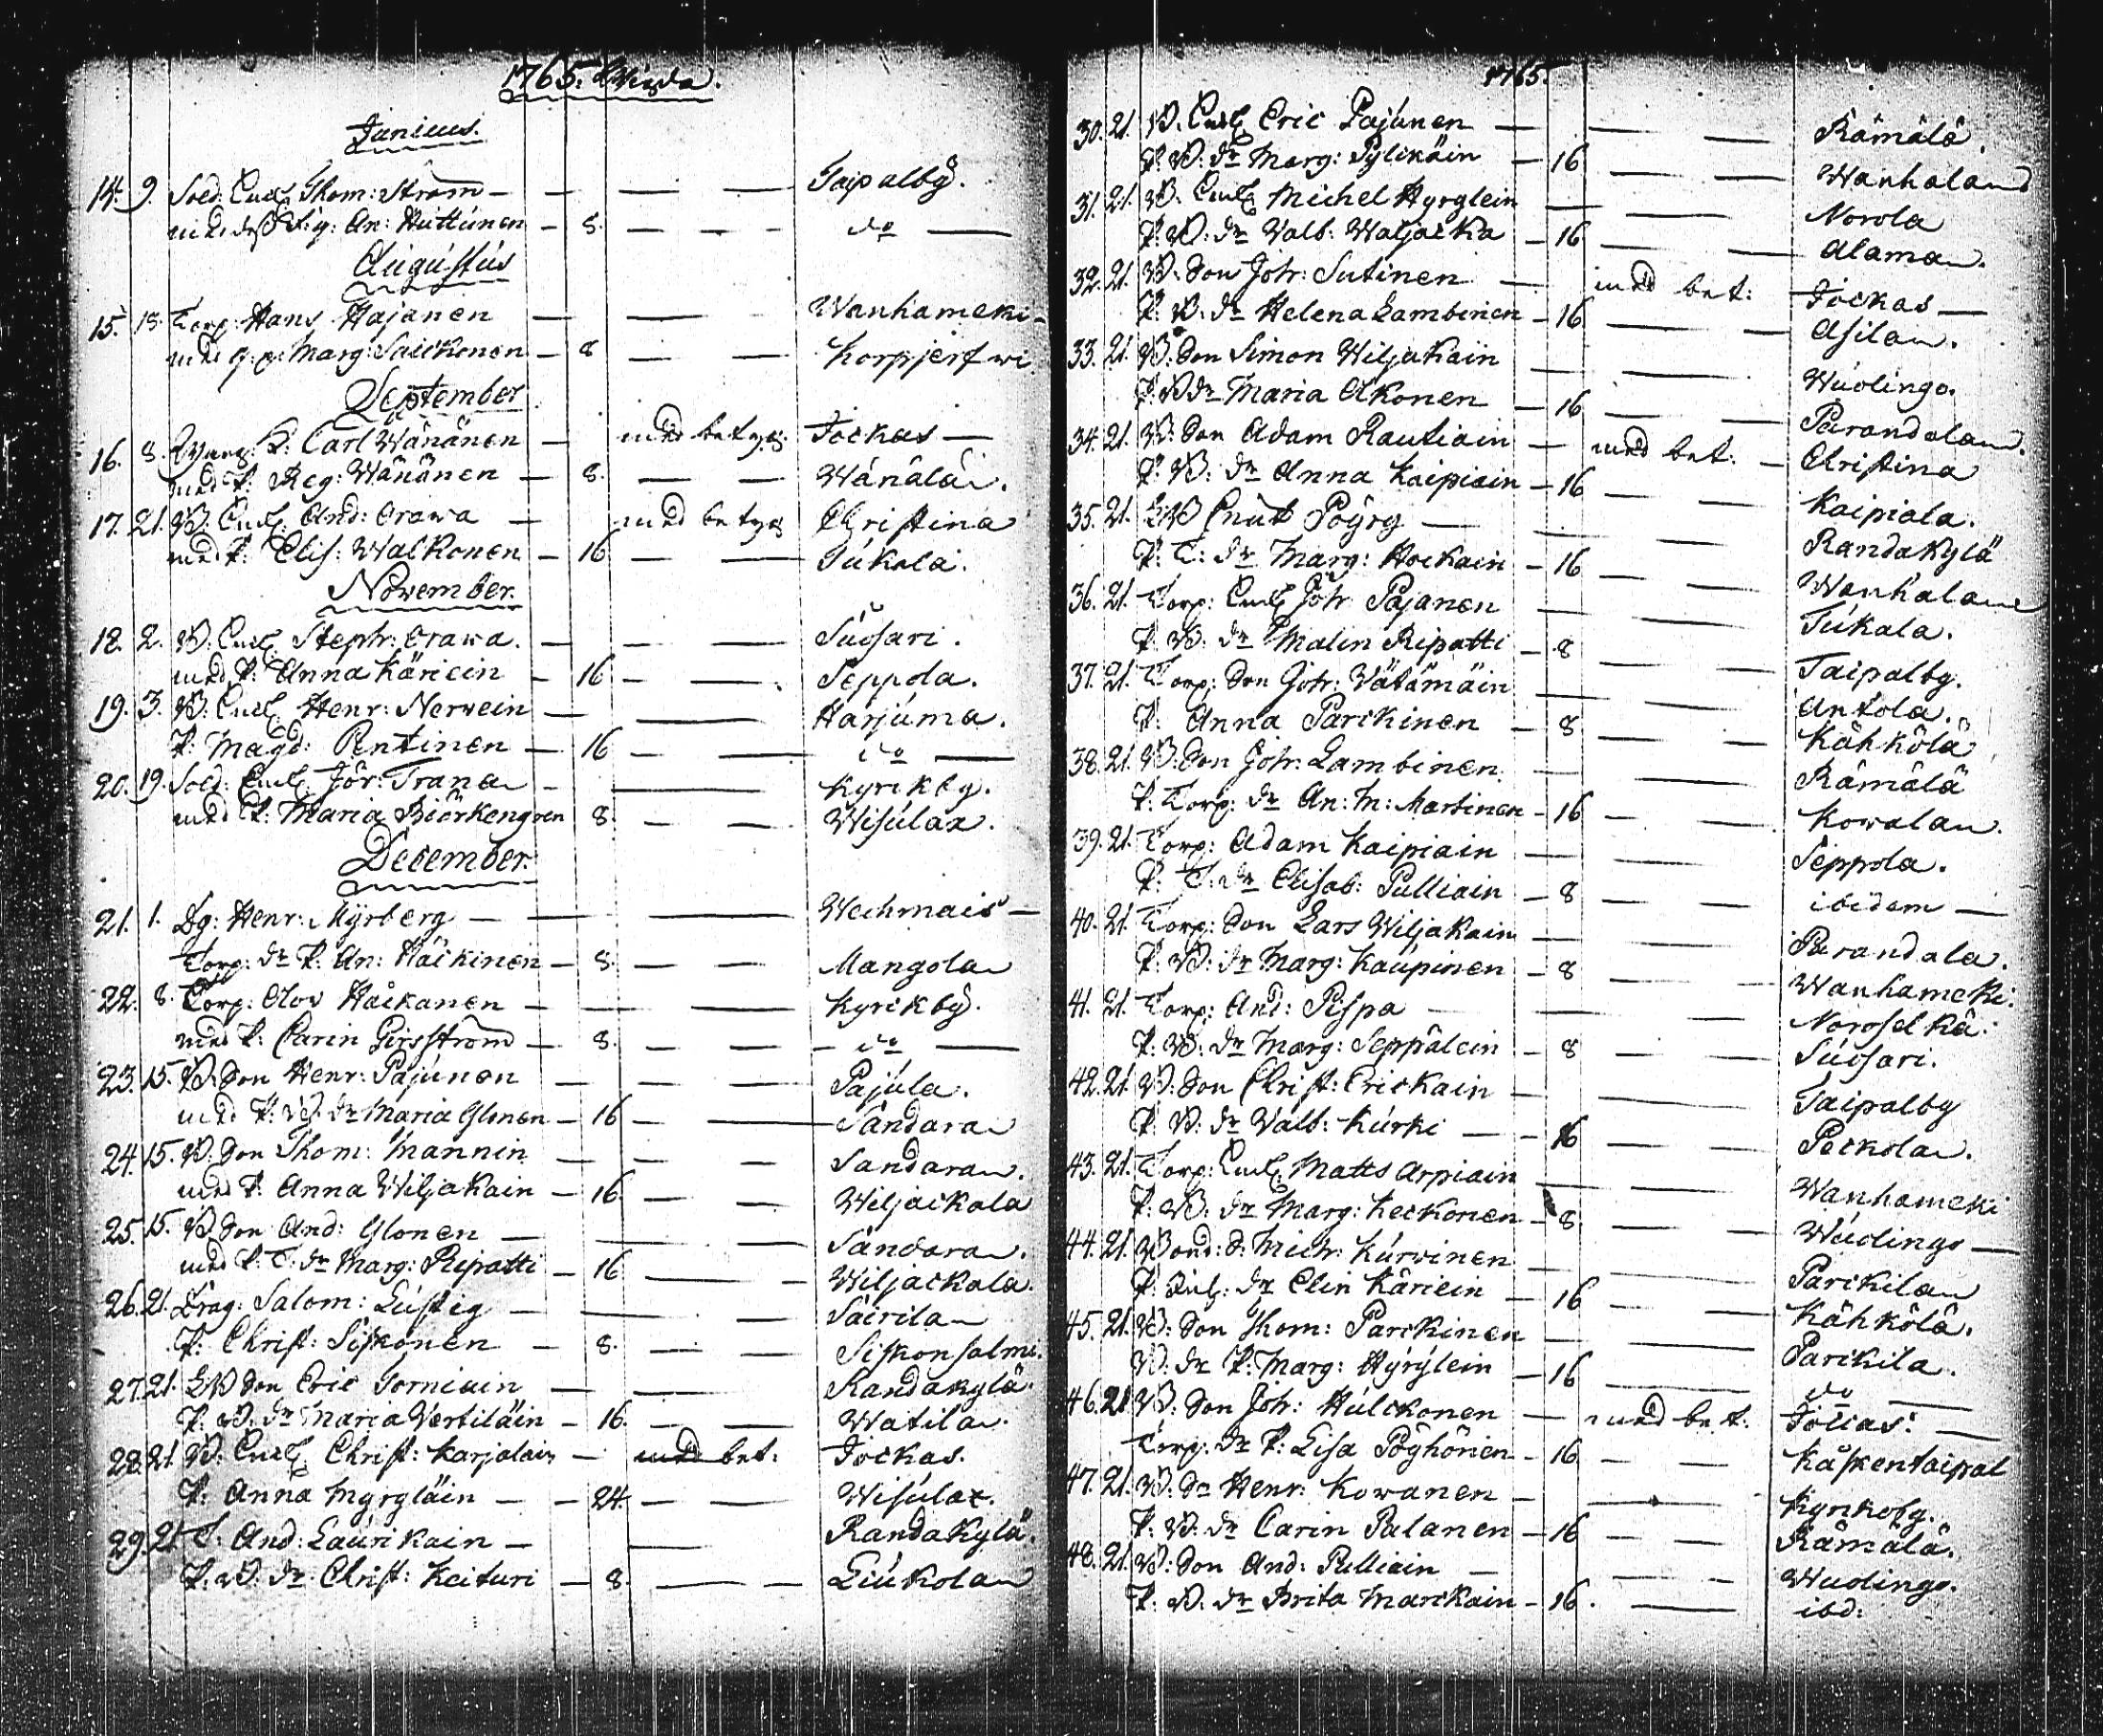 1765. Wigda.
Junius.
14. 9. Sold. Enkl. Thom: Ström — — — — Taipalby.
med dess P:ig: An: Huttunen — 8. — — — do —
Augustus
15. 18. Torp: Hans Hajanen — — — Wanhameki —
med q. p: Marg: Saickonen — 8 — — Korpjerfwi
September
16. 8. K: Carl Wänänen — med betyg Jockas —
med P. Reg: Wänänen — 8. — — Wänälä.
17. 21. B: Enkl. And: Orawa — med betyg Christina
med P. Elis: Walkonen — 16 — — Tukala.
November.
18. 2. B: Enkl. Steph: Orawa. — — — Suosari.
med P: Anna Käriein — 16 — — Seppola.
19. 3. B: Enkl. Henr: Nerwein — — Harjuma.
P: Magd: Pentinen — 16 — — do —
20. 19. Sold: Enkl. Jör: Trana — — Kyrckby.
med P: Maria Biörkengren 8. — — Wisulax.
December.
21. 1. Dg: Henr: Myrberg — — — Wechmais —
Torp: dr P: An: Häckinen — 8. — — Mangola
22. 8. Torp: Olov Håckanen — — — Kyrckby.
med P: Carin Girsström — 8. — — — do —
23. 15. B: Son Henr: Pajunen — — — Pajula.
med P: B: dr Maria Ylönen — 16 — — Sandara
24. 15. B: Son Thom: Mannin — — — Sandara.
med P. Anna Wiljakain — 16. — — Wiljackala
25. 15. B Son And: Ylonen — — — Sandara.
med P. T: dr Marg: Ripatti — 16 — — Wiljackala.
26. 21. Drag: Salom: Lustig — — — Sairila
P: Christ: Siskonen — 8. — — Siskonsalmi.
27. 21. LB Son Eric Torniain — — Randakylä.
P: B: dr Maria Vertiläin — 16. — — Watila.
28. 21. B: Enkl. Christ: Karjalain — med bet: Jockas.
P: Anna Myrgläin — — 24. — — Wisulax.
29. 21. T: And: Laurikain — — Randakylä.
P: B: dr Christ: Keituri — 8. — — Liukola
1765.
30. 21. B. Enkl. Eric Pajunen — — — Rämälä.
P. B: dr Marg: Pylikäin — 16 — — Wanhala
31. 21. B. Enkl. Michel Hyrglein — — Norola
P. B: dr Valb: Waljacka — 16 — — Alaman.
32. 21. B: Son Joh: Sutinen — med bet: Jockas —
P. B: dr Helena Lambinen — 16 — — Asila.
33. 21. B: Son Simon Wiljakain — — Wuolingo.
P: B dr Maria Akonen — 16 — — Parandala.
34. 21. B: Son Adam Rautiain — med bet: — Christina
P. B: dr Anna Kaipiain — 16 — — Kaipiala.
35. 21. LB Cnut Pöyry — — — Randakylä
P: T: dr Marg: Hockain — 16 — — Wanhala
36. 21. Torp: Enkl. Joh: Pajanen — — Tukala.
P: B: dr Malin Ripatti — 8 — — Taipalby.
37. 21. Torp: Son Joh: Vätämäin — — Antola.
P: Anna Parckinen — 8 — — Kähkölä
38. 21. B: Son Joh: Lambinen. — — Rämälä
P: Torp: dr An: M: Martinen — 16 — — Kowala.
39. 21. Torp: Adam Kaipiain — — Seppola.
P: T: dr Elisab: Pulliain — 8 — — ibidem —
40. 21. Torp: Son Lars Wiljakain — — Parandala.
P: B: dr Marg: Kaupinen — 8 — — Wanhameki.
41. 21. Torp: And: Pispa — — — Noroselkä.
P: B: dr Marg: Seppälein — 8 — — Suosari.
42. 21. B: Son Christ: Erickain — — — Taipalby
P: B: dr Valb: Kurki — — 16 — — Peckola.
43. 21. Torp: Enkl. Matts Arpiain — — Wanhameki
P: B: dr Marg: Keckonen — 8 — — Wuolingo —
44. 21. Bond: S: Mich: Kurvinen — — Parckila
P: dr Elin Käriein — 16 — — Kähkölä.
45. 21. B: Son Thom: Parckinen — — Parckila.
B. dr P: Marg: Hyrylein — 16 — — do —
46. 21 B: Son Joh: Hulckonen — med bet: Jockas. —
Torp: dr P: Lisa Pöyhönen — 16 — — Kaskentaipal
47. 21. B: Sn Henr: Kowanen — — — Kyrckoby.
P: B: dr Carin Palanen — 16 — — Rämälä.
48. 21. B: Son And: Pulliain — — — Wuolingo.
P: B: dr Brita Marckain — 16. — — ibd: